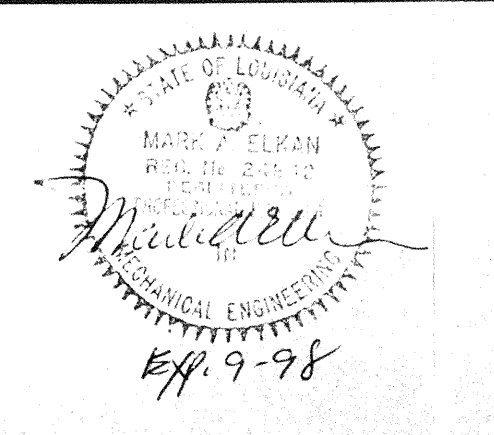 STATE OF LOUISIANA
MARK A. ELKAN
REG. No.
REGISTERED
PROFESSIONAL
IN
MECHANICAL ENGINEERING
Exp. 9-98